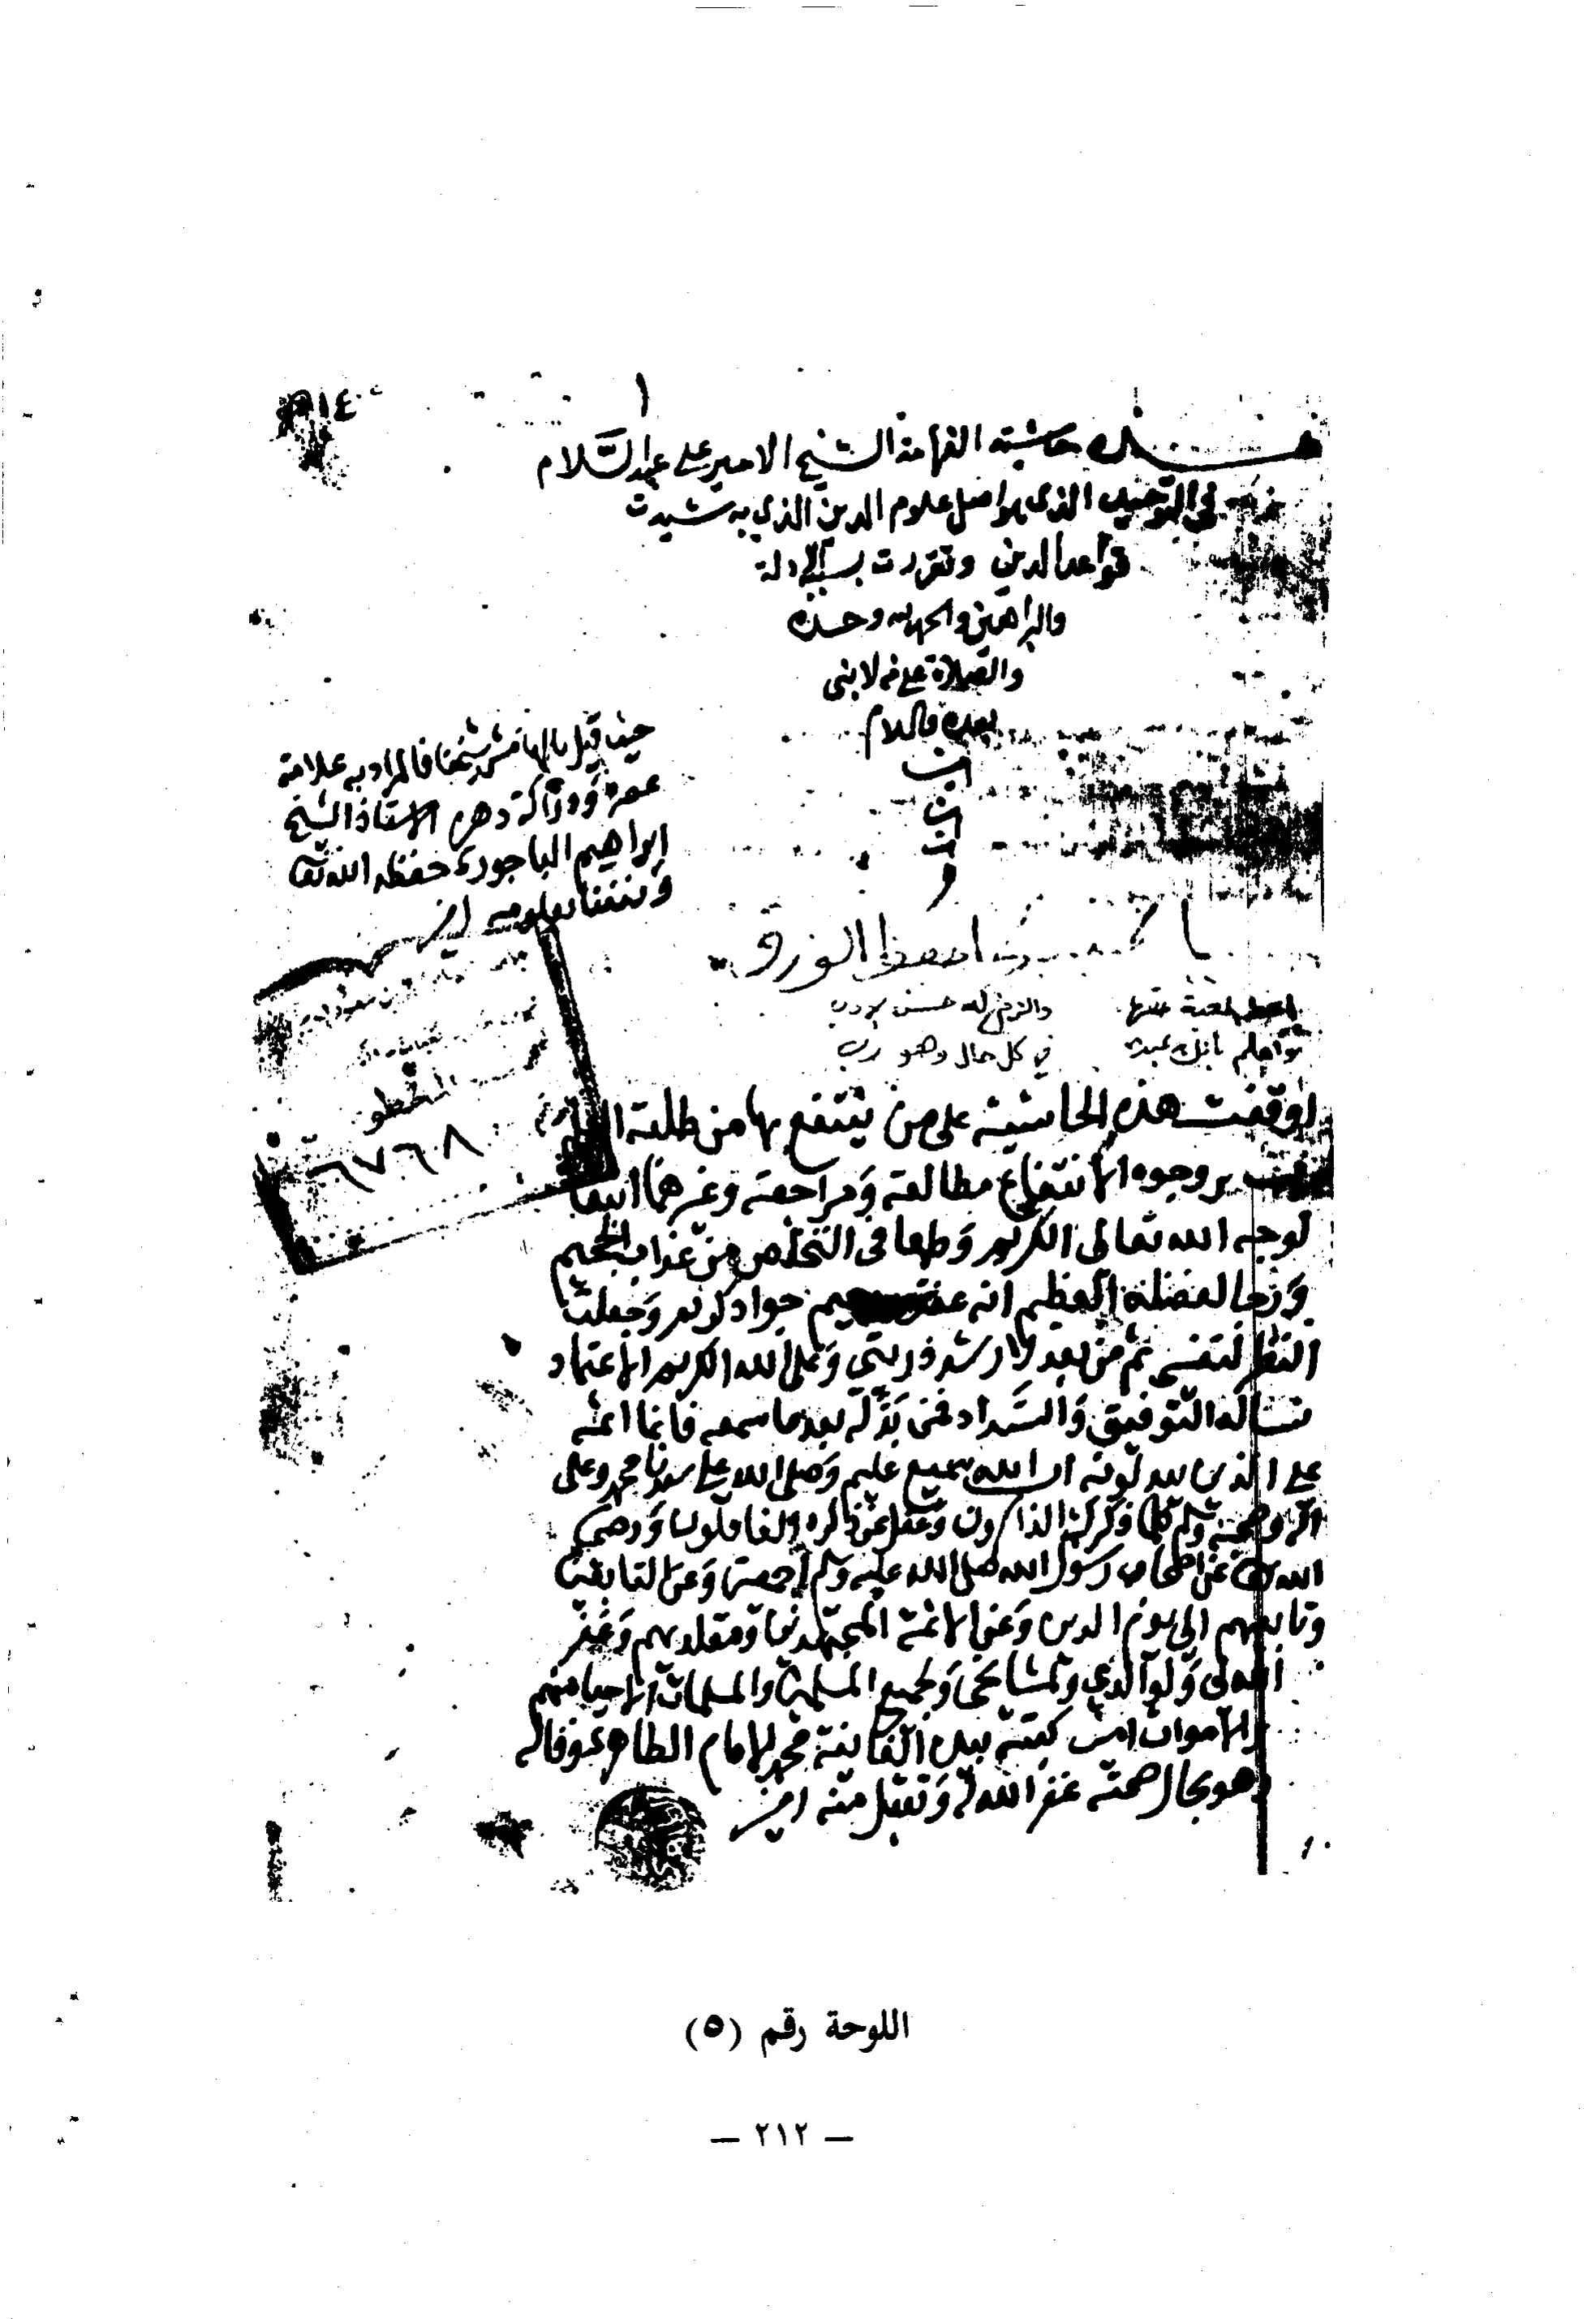 ١
هذه حاشية الفهامة الشيخ الامير على عبد السلام
في التوحيد الذي هو اصل علوم الدين الذي به شيدت
قواعد الدين وتقررت بسببه الادلة
والبراهين والحمد لله وحده
والصلاة على من لا نبي
بعده والسلام
حيث قيل بالهامش شيخنا فالمراد به علامة
عصره وورّاكة دهره الاستاذ الشيخ
ابراهيم الباجوري حفظه الله تعا
ونفعنا بعلومه امين
يا كبيكج احفظ الورق
والزم له حسن الادب
واعلم بانك عبده
في كل حال وهو رب
٦٧٦٠٨
اوقفت هذه الحاشية على من ينتفع بها من طلبة
بوجوه الانتفاع مطالعة ومراجعة وغرهما ابتغا
لوجه الله تعالى الكريم وطمعا في التخلص من عذاب الجحيم
ورجا لفضله العظيم انه جواد كريم وجعلت
النظر لنفسي ثم من بعد لارشد ذريتي وعلى الله الكريم الاعتماد
نساله التوفيق والسداد فمن بدّله بعد ما سمعه فانما اثمه
على الذين يبدلونه ان الله سميع عليم وصلى الله على سيدنا محمد وعلى
اله وصحبه وسلم كلما ذكرك الذاكرون وغفل عن ذكره الغافلون ورضي
الله عن اصحاب رسول الله صلى الله عليه وسلم اجمعين وعن التابعين
وتابعهم الى يوم الدين وعن الائمة المجتهدين ومقلديهم وغفر
الله لي ولوالدي ولمشايخي ولجميع المسلمين والمسلمات الاحيا منهم
والاموات امين كتبه بيده الفانية محمد الامام الطاهري وقاله
غفر الله له وتقبل منه امين
اللوحة رقم (٥)
— ٢١٢ —